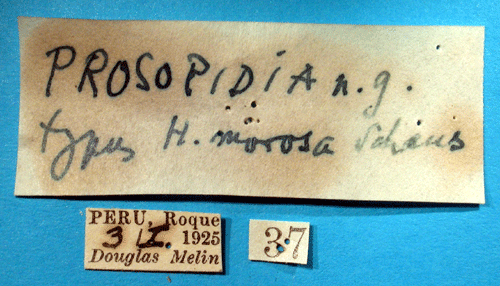 PROSOPIDIA n.g.
typus H. morosa Schaus
PERU, Roque
3 IX. 1925
Douglas Melin
37